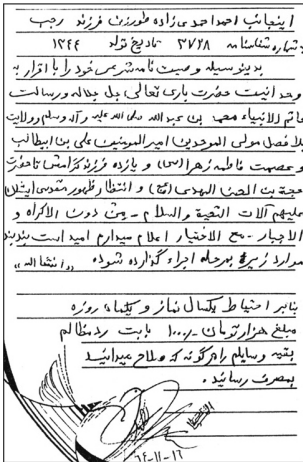 اینجانب احمد احمدی زاده طورزن فرزند رجب
شماره شناسنامه ۳۷۲۸ تاریخ تولد ۱۳۴۴
بدینوسیله وصیت نامه شرعی خود را با اقرار به
وحدانیت حضرت باری تعالی جل جلاله و رسالت
خاتم الانبیاء محمد بن عبدالله صلی الله علیه و آله وسلم و ولایت
بلافصل مولی الموحدین امیرالمومنین علی بن ابیطالب
و عصمت فاطمه زهرا (س) و یازده فرزند گرامش تا حضرت
حجة بن الحسن المهدی (عج) و انتظار ظهور مقدس ایشان
علیهم آلات التحیة والسلام - من دون الاکراه و
الاجبار - مع الاختیار اعلام میدارم امید است بندبند
موارد زیر به مرحله اجراء گذارده شود «انشاءالله»
بنابر احتیاط یکسال نماز و یکماه روزه
مبلغ هزار تومان ۱۰۰۰- بابت رد مظالم
بقیه وسایلم را هرگونه که صلاح میدانید
بمصرف رسانید.
۶۴-۱۱-۱۶